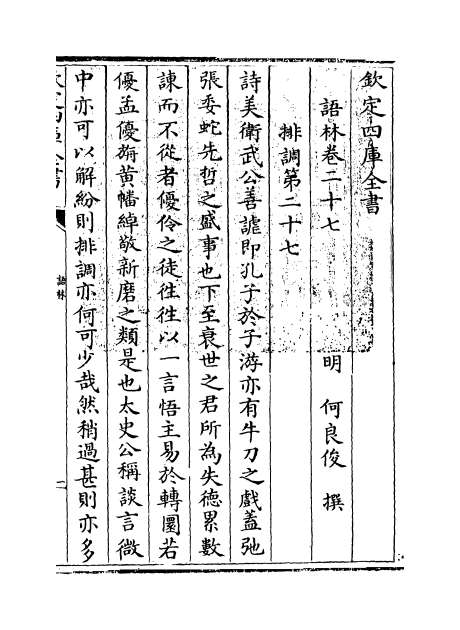 欽定四庫全書
語林卷二十七
明 何良俊 撰
排調第二十七
詩美衛武公善謔即孔子於子游亦有牛刀之戲蓋弛
張委蛇先哲之盛事也下至衰世之君所為失德累數
諫而不從者優伶之徒往往以一言悟主易於轉圜若
優孟優旃黃幡綽敬新磨之類是也太史公稱談言微
中亦可以解紛則排調亦何可少哉然稍過甚則亦多
欽定四庫全書
語林